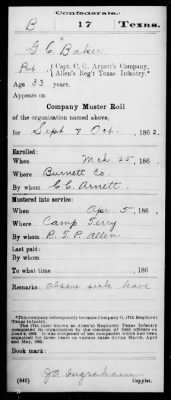 Confederate.
B 17 Texas.
G. C. Baker
Pvt, Capt. C. C. Arnett's Company,
Allen's Reg't Texas Infantry.*
Age 33 years.
Appears on
Company Muster Roll
of the organization named above,
for Sept & Oct, 1862.
Enrolled:
When Mch 25, 186
Where Burnett Co.
By whom C. C. Arnett
Mustered into service:
When Apr. 5, 186
Where Camp Terry
By whom R. T. P. Allen
Last paid:
By whom
To what time , 186
Remarks: absent sick leave
*This company subsequently became Company B, 17th Regiment
Texas Infantry.
The 17th (also known as Allen's) Regiment Texas Infantry
completed its organization by the election of field officers on
Book mark:
(642) J A Ingraham
Copyist.